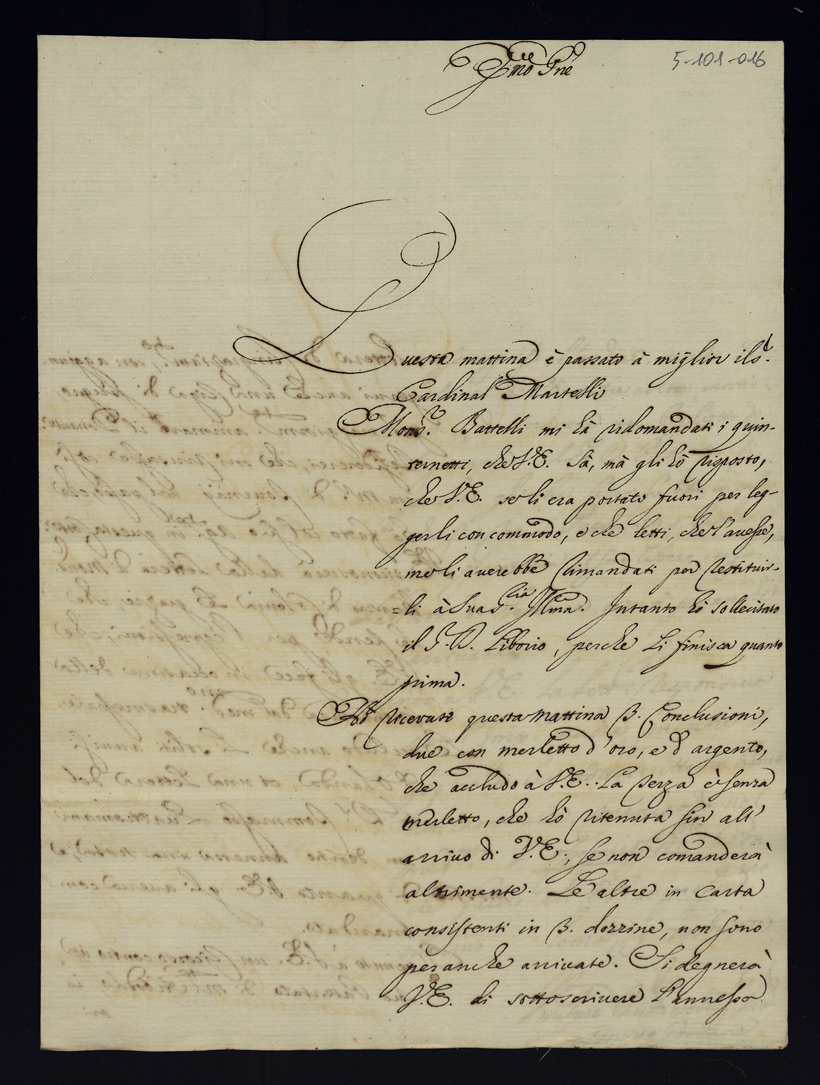 5-101-016
Em̃o Pñe
Questa mattina è passato à miglior il S.r
Cardinal Martelli
Mons.r Battelli mi hà ridomandati i quin-
ternetti, che V.E. sà, mà gli hò risposto,
che V.E. se li era portati fuori per leg-
gerli con commodo, e che letti, che l'avesse,
me li averebbe rimandati per restituir-
=li à Sua S.ria Ill̃ma. Intanto hò sollecitato
il P. D. Liborio, perche li finisca quanto
prima.
Hò ricevute questa mattina 3. Conclusioni,
due con merletto d'oro, e d'argento,
che accludo à V.E.. La terza è senza
merletto, che hò ritenuta sin all'
arrivo di V.E., se non comanderà
altrimente. Le altre in carta
consistenti in 3. dozzine, non sono
per anche arrivate. Si degnerà
V.E. di sottoscrivere l'annessa